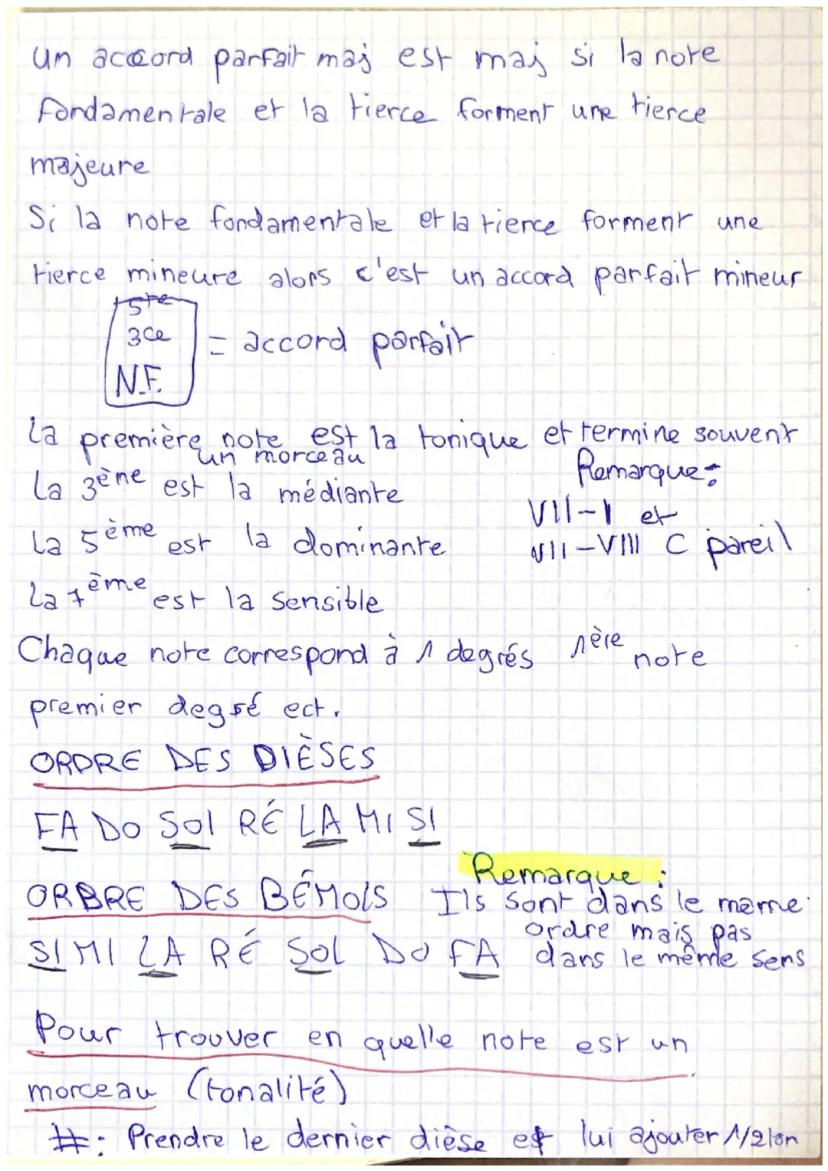 un accord parfait maj est maj si la note
fondamentale et la tierce forment une tierce
majeure
Si la note fondamentale et la tierce forment une
tierce mineure alors c'est un accord parfait mineur
5te
3ce = accord parfait
N.F.
La première note est la tonique et termine souvent
un morceau
Remarque:
La 3ène est la médiante
VII-I et
La 5ème est la dominante
VII-VIII C pareil
La 7ème est la sensible
Chaque note correspond à 1 degrés 1ère note
premier degré ect.
ORDRE DES DIÈSES
FA DO SOl RÉ LA MI SI
Remarque :
ORBRE DES BÉMOLS Ils sont dans le meme
ordre mais pas
SI MI LA RÉ SOL DO FA dans le même sens
Pour trouver en quelle note est un
morceau (tonalité)
#: Prendre le dernier dièse et lui ajouter 1/2 ton